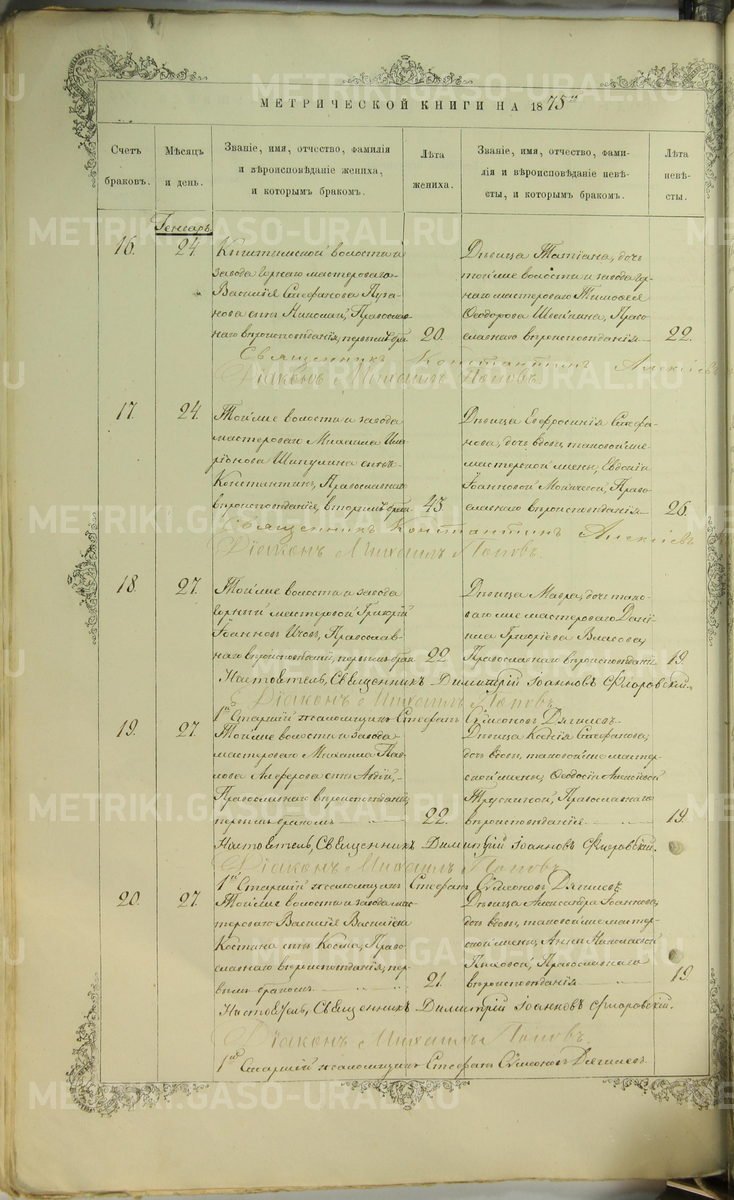 МЕТРИЧЕСКОЙ КНИГИ НА 1875й
Счетъ браковъ.
Мѣсяцъ и день.
Званіе, имя, отчество, фамилія и вѣроисповѣданіе жениха, и которымъ бракомъ.
Лѣта жениха.
Званіе, имя, отчество, фамилія и вѣроисповѣданіе невѣсты, и которымъ бракомъ.
Лѣта невѣсты.
Генварь
16.
24
Кыштымской волости и
завода горнаго мастероваго
Василія Стефанова
нова сынъ Николай, Православ-
наго вѣроисповѣданія, первымъ бра.
20.
Дѣвица Татіана, дочь
той же волости и завода гор-
наго мастероваго Тимоѳея
Ѳеодорова Право-
славнаго вѣроисповѣданія
22.
Священникъ Константинъ Алексіевъ
Діаконъ Михаилъ Поповъ.
17.
24.
Той же волости и завода
мастероваго Михаила Ила-
ріонова Шипулина сынъ
Константинъ, Православнаго
вѣроисповѣданія, вторымъ брак.
43.
Дѣвица Евфросинія Стефа-
нова, дочь вдовы, таковой же
мастерской жены, Евдокіи
Іоанновой Православнаго вѣроисповѣданія
26.
Священникъ Константинъ Алексіевъ
Діаконъ Михаилъ Поповъ.
18.
27.
Той же волости и завода
горный мастеровой Григорій
Іоанновъ Православ-
наго вѣроисповѣданія, первымъ брак
22
Дѣвица Мавра, дочь тако-
ваго же мастероваго Дані-
ила Григоріева Власова,
Православнаго вѣроисповѣданія
19.
Настоятель, Священникъ Димитрій Іоанновъ Фигаровскій.
Діаконъ Михаилъ Поповъ
1й Старшій псаломщикъ Стефанъ Сѵмеоновъ Дягилевъ.
19.
27.
Той же волости и завода
мастероваго Михаила Пав-
лова Алферова сынъ Авдій,
Православнаго вѣроисповѣданія,
первымъ бракомъ
22.
Дѣвица Ксенія Стефанова,
дочь вдовы, таковой же мастер-
ской жены, Ѳеодосіи Алексіевой
Православнаго
вѣроисповѣданія
19.
Настоятель, Священникъ Димитрій Іоанновъ Фигаровскій.
Діаконъ Михаилъ Поповъ
1й Старшій псаломщикъ Стефанъ Сѵмеоновъ Дягилевъ
20.
27.
Той же волости и завода мас-
тероваго Василія Василіева
Костина сынъ Косма, Право-
славнаго вѣроисповѣданія, пер-
вымъ бракомъ
21.
Дѣвица Александра Іоаннова,
дочь вдовы, таковой же мастер-
ской жены, Анны Николаевой
Православнаго
вѣроисповѣданія
19.
Настоятель, Священникъ Димитрій Іоанновъ Фигаровскій.
Діаконъ Михаилъ Поповъ
1й Старшій псаломщикъ Стефанъ Сѵмеоновъ Дягилевъ
METRIKI.GASO-URAL.RU